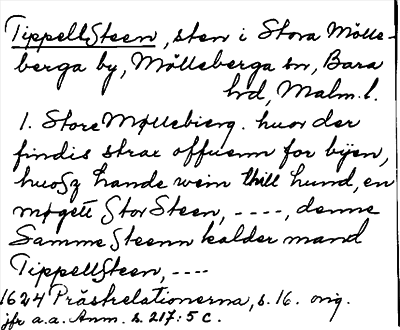 TippellSteen, sten i Stora Mölle-
berga by, Mölleberga sn, Bara
hd, Malm. l.
1. Store Møllebierg. huor der
findis strax offuenn for byen,
huoSz hande wein thill Lund, en
møgett StorSteen, ----, denne
Samme Steenn kalder mand
TippellSteen, ----
1624 Prästrelationerna, s. 16. orig.
jfr a.a. Anm. s. 217:5 c.